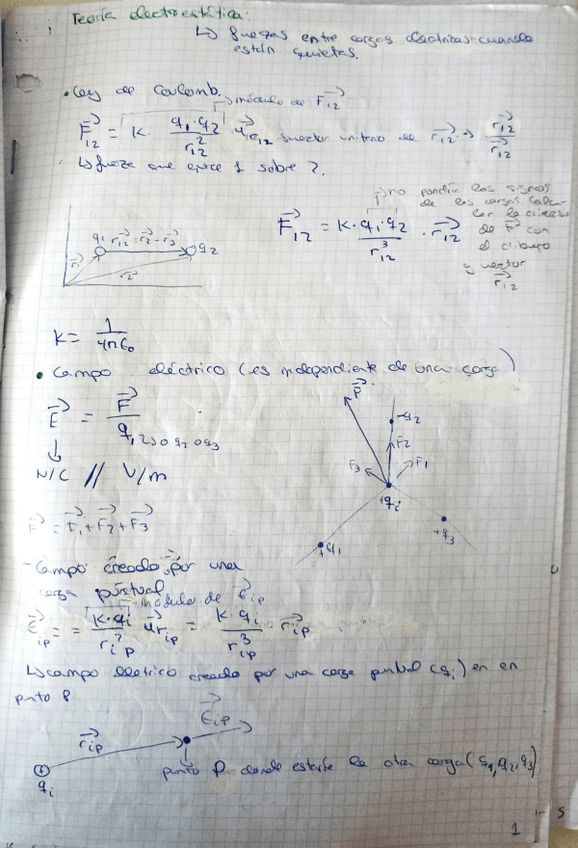 Teoría electroestática:
↳ fuerzas entre cargas eléctricas cuando
están quietas.
• Ley de Coulomb.
→ módulo de F⃗12
F⃗12 = K · q1·q2 / r12² · u⃗r12 vector unitario de r⃗12 → r⃗12 / r⃗12
↳ fuerza que ejerce 1 sobre 2.
→ no pondría los signos
de las cargas
F⃗12 = K·q1·q2 / r12³ · r⃗12
de F⃗ con
el dibujo
y vector
r⃗12
q1 q2
r⃗1 r⃗2
K = 1 / 4πε0
• Campo eléctrico (es independiente de una carga)
E⃗ = F⃗ / q1, 2 o q2 o q3
N/C // V/m
F⃗ = F⃗1 + F⃗2 + F⃗3
-q2
F⃗2
F⃗3 F⃗1
+qi
+q1 +q3
- Campo creado por una
carga puntual
módulo de E⃗ip
E⃗ip = K·qi / rip² u⃗rip = K·qi / rip³ r⃗ip
↳ campo eléctrico creado por una carga puntual (qi) en un
punto P
E⃗ip
r⃗ip
qi
punto P donde estaría la otra carga (q1, q2, q3)
1